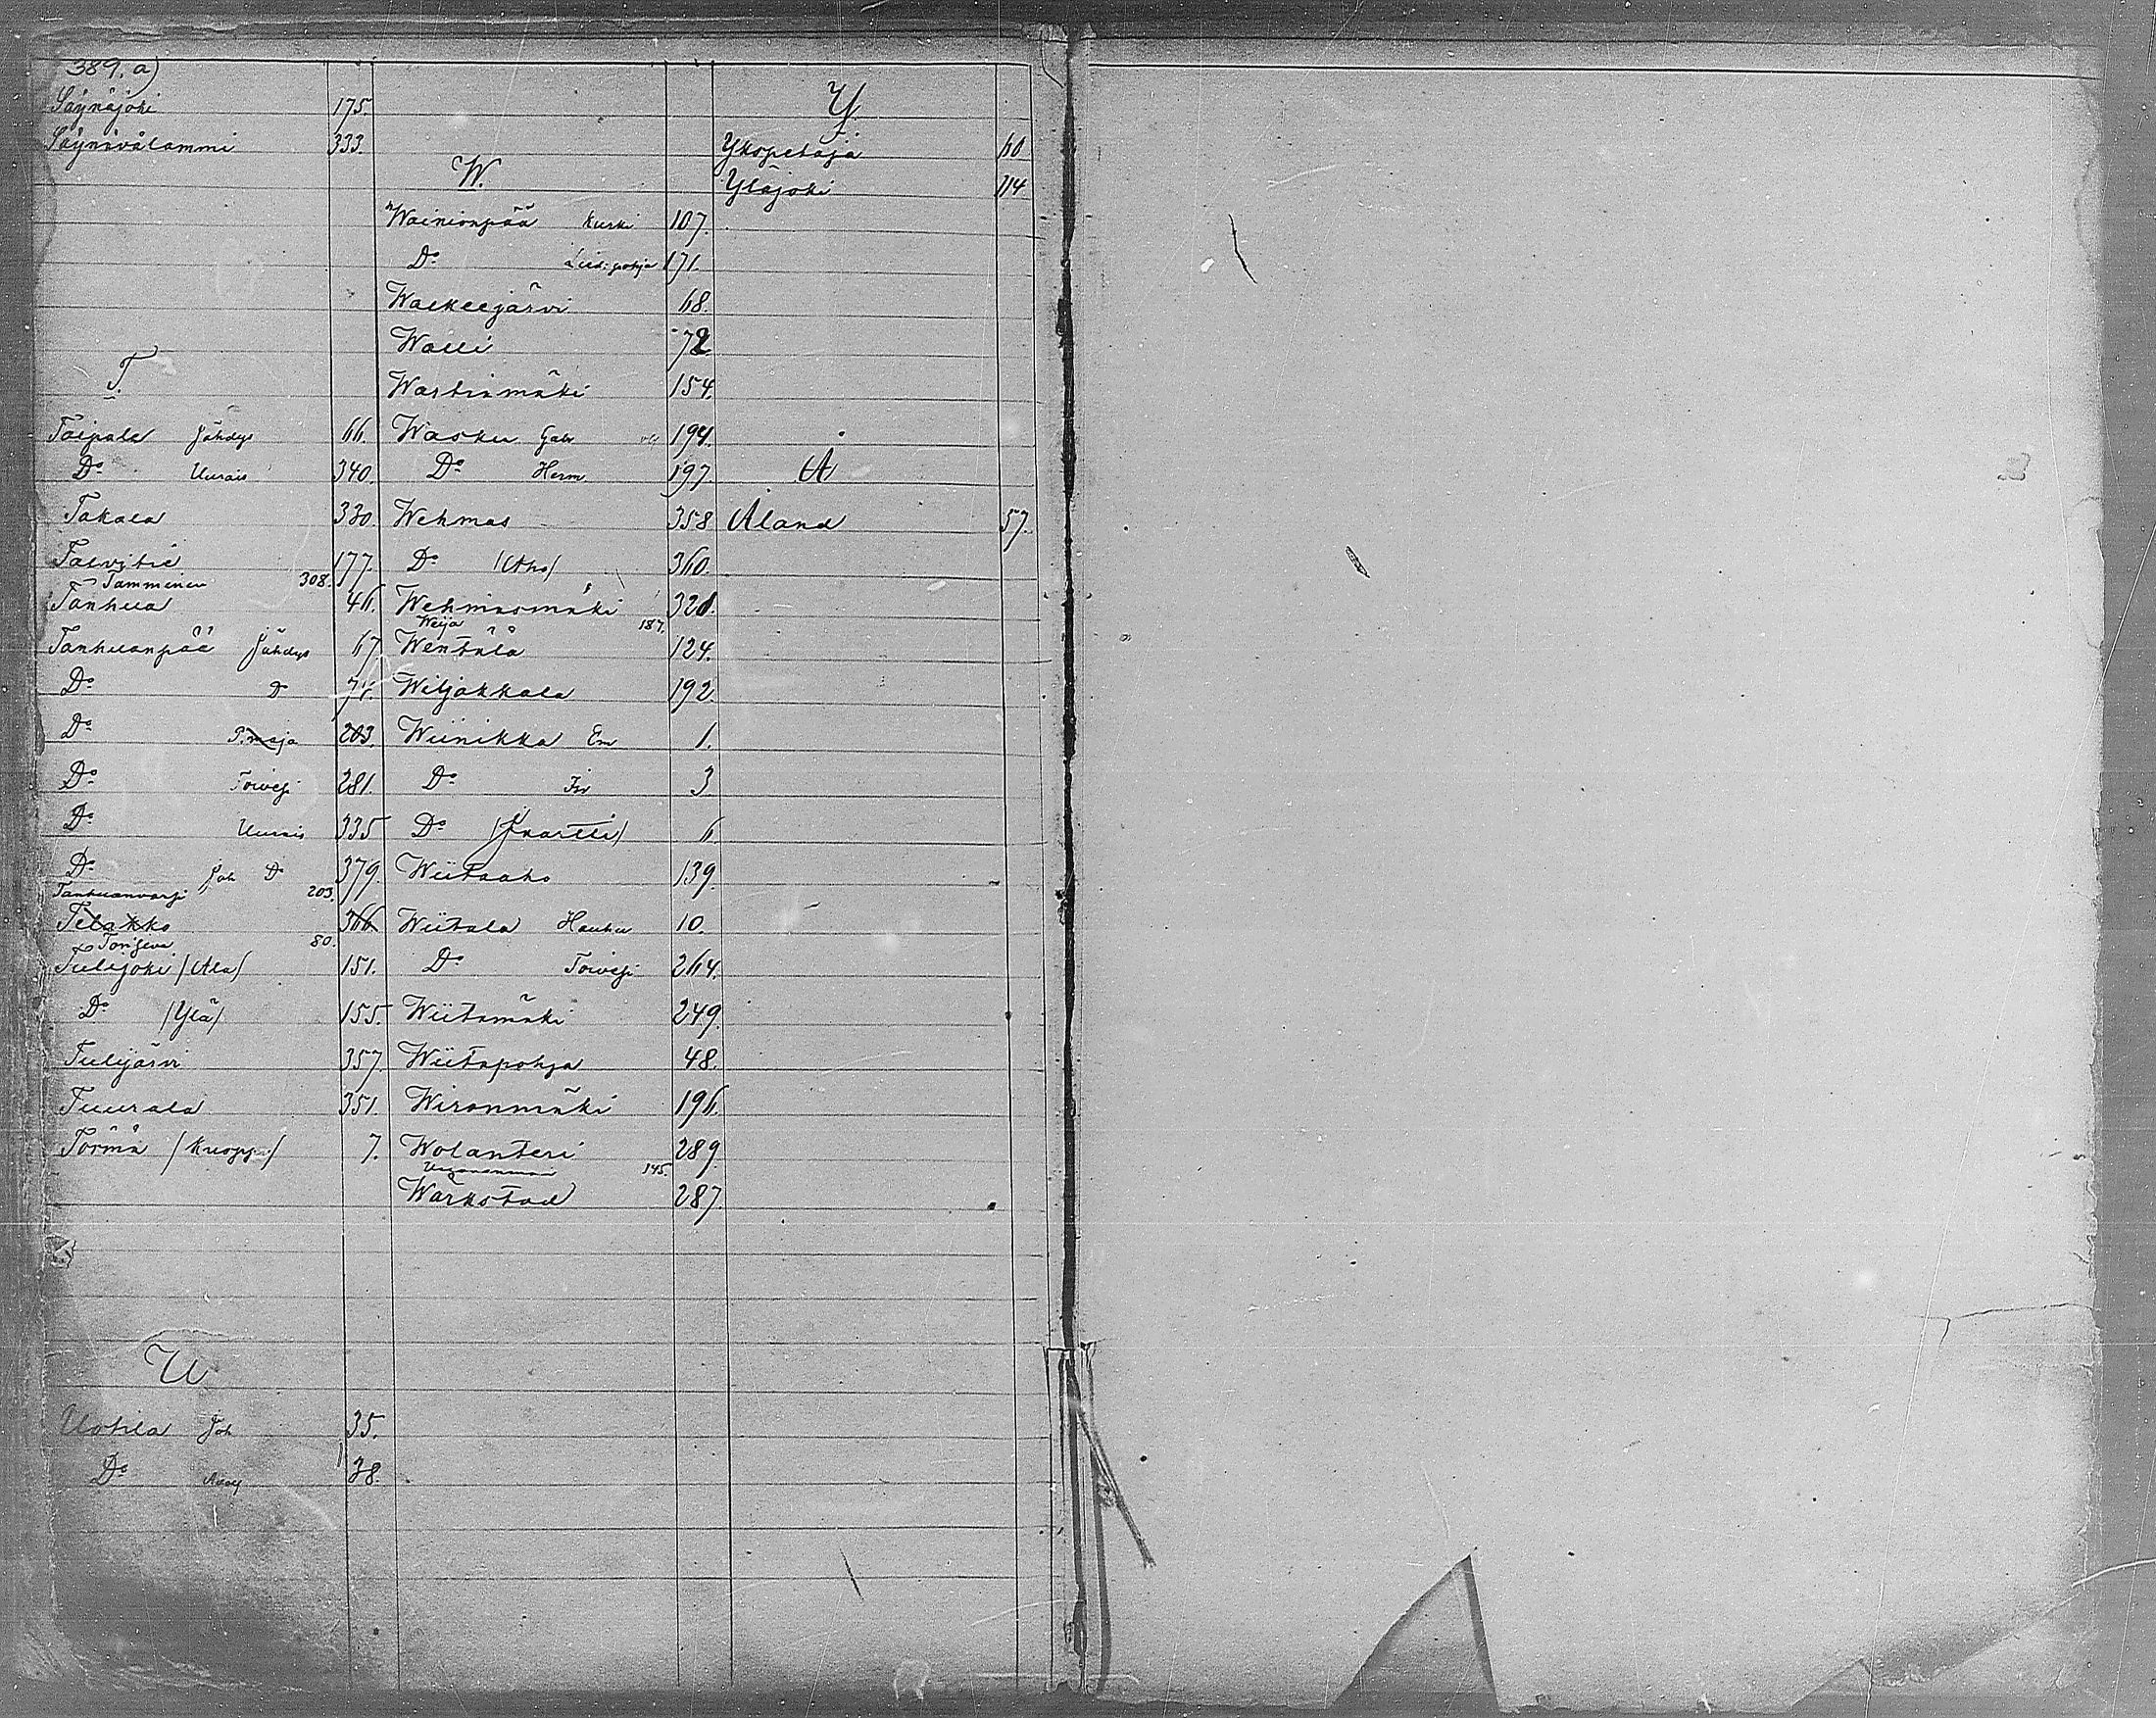 389. a)
Säynäjoki 175.
Säynävälammi 333.
T.
Taipale Jähdys 66.
Do Uurais 340.
Takala 330.
Talvitie 177.
Tamminen 308.
Tanhua 46.
Tanhuanpää Jähdys 67
Do Do 74.
Do P.maja 203.
Do Toivesi 281.
Do Uurais 335
Do Joh Do 379.
Tanhuanvarsi 203.
Telakko 366
Torijeva 80.
Tulijoki /Ala/ 151.
Do /Ylä/ 155.
Tulijärvi 357.
Tuurala 351.
Törmä /Kuoppa/ 7.
U
Uotila Joh 35.
Do Adolf 38.
W.
Wainionpää Kurki 107.
Do Lied:pohja 171.
Walkeejärvi 68.
Walli 72
Wastinmäki 154.
Wasku Gabr 194.
Do Herm. 197.
Wehmas 358
Do /Aho/ 360.
Wehmasmäki 328.
Weija 187.
Wentälä 124.
Wiljakkala 192.
Wiinikka Em 1.
Do Is 3
Do /Jvartti/ 6
Wiitaaho 139.
Wiitala Hauhu 10.
Do Toivesi 264.
Wiitamäki 249.
Wiitapohja 48.
Wironmäki 196.
Wolanteri 289.
145.
Wärkstad 287.
Y
Ykspetäjä 60
Yläjoki 114
Å
Åland 57.